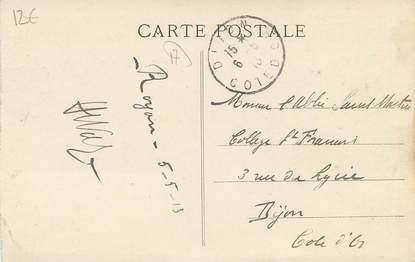 12€
CARTE POSTALE
17
DIJON
15 *
6 - 5
COTE D'OR
Royan - 5-5-13
Monsieur l'Abbé Saint Martin
Collège St François
3 rue du Lycée
Dijon
Cote d'Or